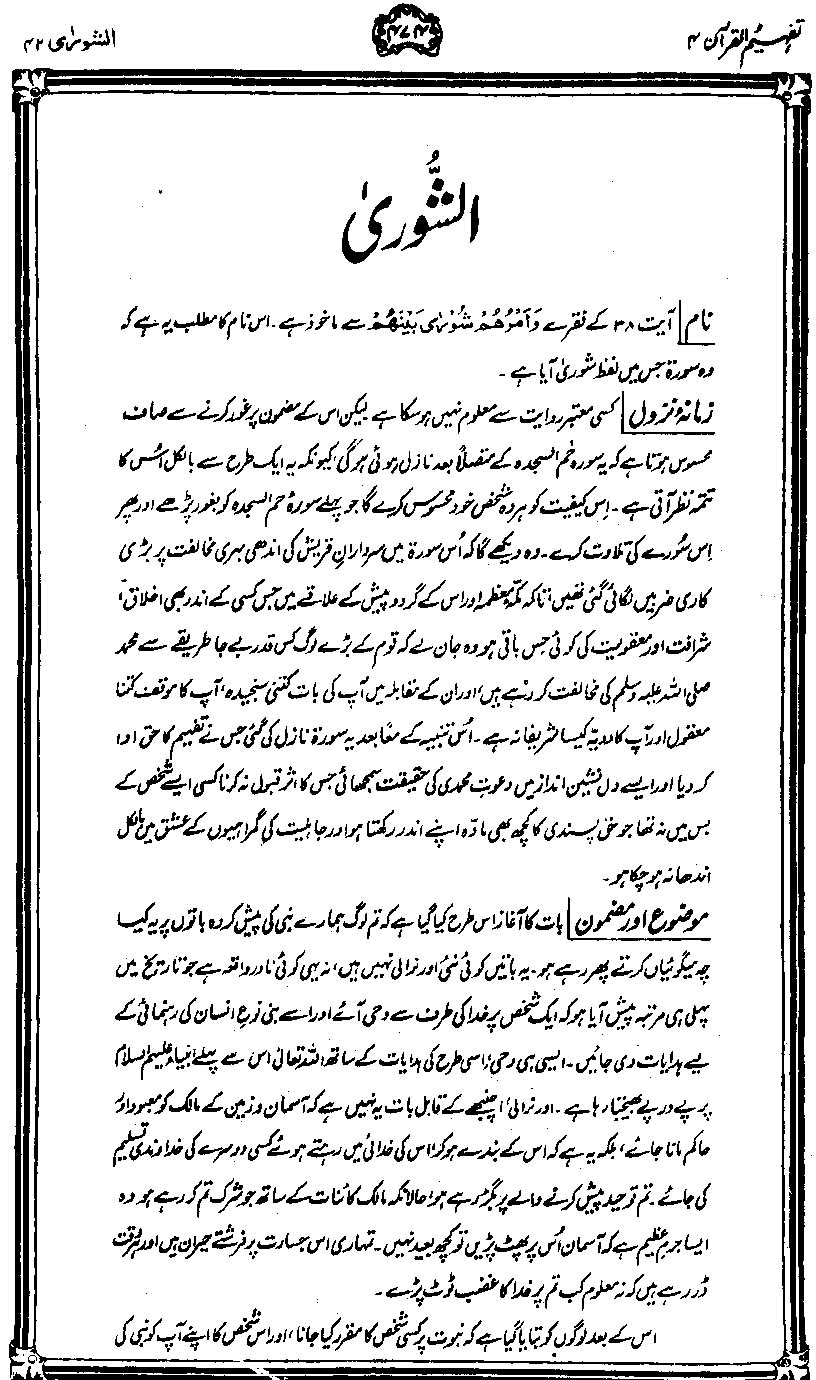 تفہیم القرآن ۴
۴۷۴
الشورٰی ۴۲
الشُّوریٰ
نام آیت ۳۸ کے فقرے وَاَمْرُھُمْ شُوْرٰی بَیْنَھُمْ سے ماخوذ ہے۔ اس نام کا مطلب یہ ہے کہ
وہ سورۃ جس میں لفظ شوریٰ آیا ہے۔
زمانۂ نزول کسی معتبر روایت سے معلوم نہیں ہو سکا ہے لیکن اس کے مضمون پر غور کرنے سے صاف
محسوس ہوتا ہے کہ یہ سورہ حٰم السجدہ کے متصلاً بعد نازل ہوئی ہوگی، کیونکہ یہ ایک طرح سے بالکل اُس کا
تتمہ نظر آتی ہے۔ اِس کیفیت کو ہر وہ شخص خود محسوس کرے گا جو پہلے سورۂ حم السجدہ کو بغور پڑھے اور پھر
اِس سُورے کی تلاوت کرے۔ وہ دیکھے گا کہ اُس سورۃ میں سردارانِ قریش کی اندھی بہری مخالفت پر بڑی
کاری ضربیں لگائی گئی تھیں، تاکہ مکۂ معظمہ اور اس کے گرد و پیش کے علاقے میں جس کسی کے اندر بھی اخلاق،
شرافت اور معقولیت کی کوئی حس باقی ہو وہ جان لے کہ قوم کے بڑے لوگ کس قدر بے جا طریقے سے محمد
صلی اللہ علیہ وسلم کی مخالفت کر رہے ہیں، اور ان کے مقابلہ میں آپ کی بات کتنی سنجیدہ، آپ کا موقف کتنا
معقول اور آپ کا رویہ کیسا شریفانہ ہے۔ اُس تنبیہ کے معاً بعد یہ سورۃ نازل کی گئی جس نے تفہیم کا حق ادا
کر دیا اور ایسے دل نشین انداز میں دعوتِ محمدی کی حقیقت سمجھائی جس کا اثر قبول نہ کرنا کسی ایسے شخص کے
بس میں نہ تھا جو حق پسندی کا کچھ بھی مادّہ اپنے اندر رکھتا ہو اور جاہلیت کی گمراہیوں کے عشق میں بالکل
اندھا نہ ہو چکا ہو۔
موضوع اور مضمون بات کا آغاز اس طرح کیا گیا ہے کہ تم لوگ ہمارے نبی کی پیش کردہ باتوں پر یہ کیسا
چہ میگوئیاں کرتے پھر رہے ہو۔ یہ باتیں کوئی نئی اور نرالی نہیں ہیں، نہ یہی کوئی نادر واقعہ ہے جو تاریخ میں
پہلی ہی مرتبہ پیش آیا ہو کہ ایک شخص پر خدا کی طرف سے وحی آئے اور اسے بنی نوع انسان کی رہنمائی کے
لیے ہدایات دی جائیں۔ ایسی ہی وحی، اسی طرح کی ہدایات کے ساتھ اللہ تعالیٰ اس سے پہلے انبیاء علیہم السلام
پر پے در پے بھیجتا رہا ہے۔ اور نرالی، اچنبھے کے قابل بات یہ نہیں ہے کہ آسمان و زمین کے مالک کو معبود اور
حاکم مانا جائے، بلکہ یہ ہے کہ اس کے بندے ہو کر، اس کی خدائی میں رہتے ہوئے کسی دوسرے کی خداوندی تسلیم
کی جائے۔ تم توحید پیش کرنے والے پر بگڑ رہے ہو، حالانکہ مالک کائنات کے ساتھ جو شرک تم کر رہے ہو وہ
ایسا جرمِ عظیم ہے کہ آسمان اُس پر پھٹ پڑیں تو کچھ بعید نہیں۔ تمہاری اس جسارت پر فرشتے حیران ہیں اور ہر وقت
ڈر رہے ہیں کہ نہ معلوم کب تم پر خدا کا غضب ٹوٹ پڑے۔
اس کے بعد لوگوں کو بتایا گیا ہے کہ نبوت پر کسی شخص کا مقرر کیا جانا، اور اس شخص کا اپنے آپ کو نبی کی